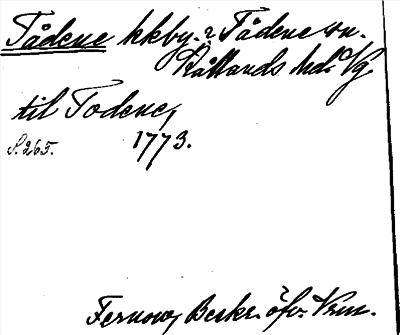 Tådene kkby. i Tådene sn.
Kållands hd. Vg.
til Todene,
S. 265. 1773.
Fernow, Beskr. öfv. Vrm.